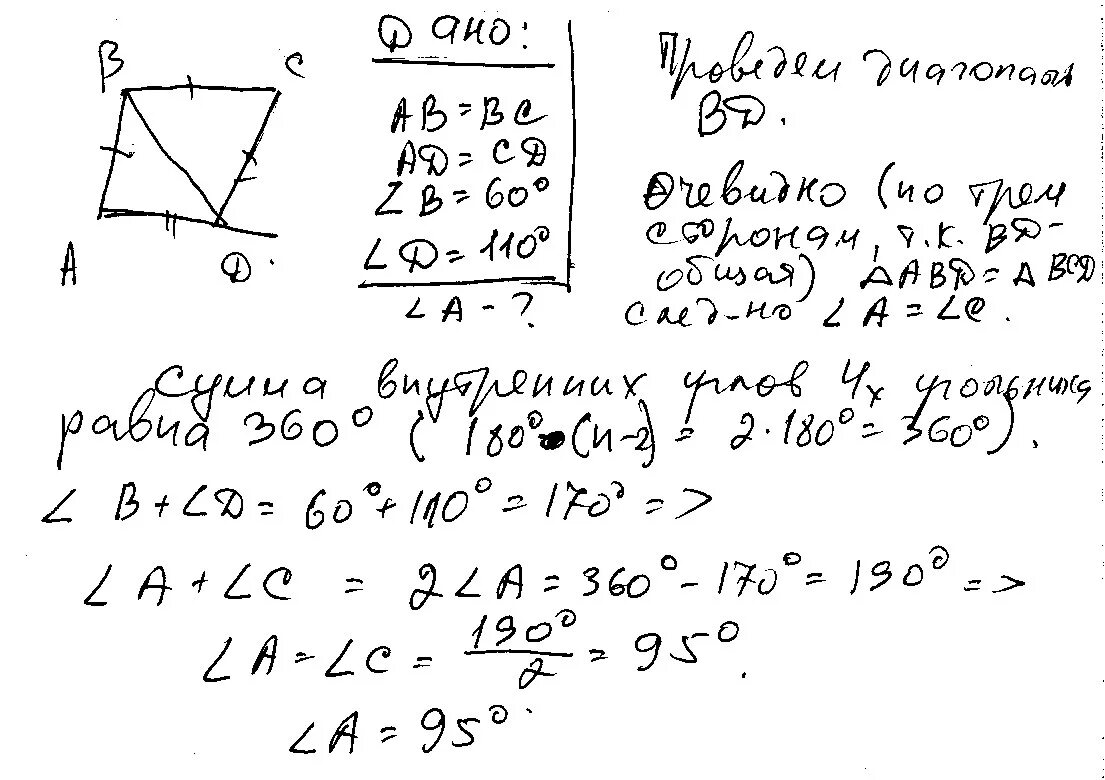 B
C
A
D
Дано:
AB = BC
AD = CD
∠B = 60°
∠D = 110°
∠A - ?
Проведем диагональ
BD.
Очевидно (по трем
сторонам, т.к. BD-
общая) △ABD = △BCD
след-но ∠A = ∠C.
Сумма внутренних углов 4х угольника
равна 360° (180°·(n-2) = 2·180° = 360°).
∠B + ∠D = 60° + 110° = 170° =>
∠A + ∠C = 2∠A = 360° - 170° = 190° =>
∠A = ∠C = 190°/2 = 95°.
∠A = 95°.